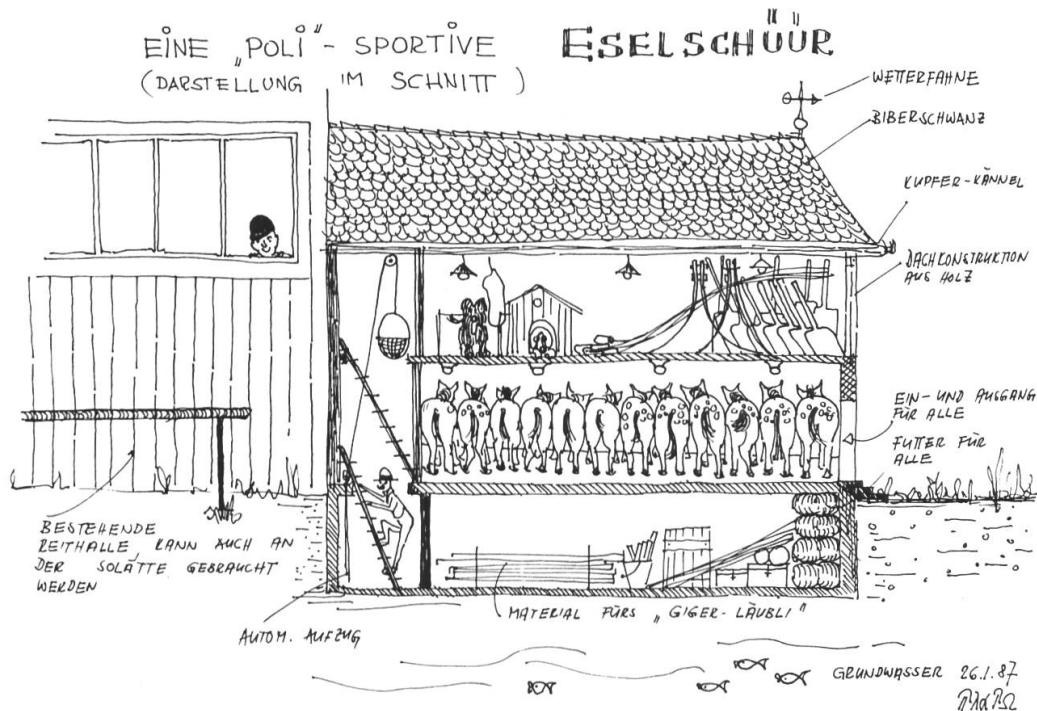 EINE „POLI"- SPORTIVE ESELSCHÜÜR
(DARSTELLUNG IM SCHNITT)
WETTERFAHNE
BIBERSCHWANZ
KUPFER-KÄNNEL
DACHKONSTRUKTION
AUS HOLZ
EIN- UND AUSGANG
FÜR ALLE
FUTTER FÜR
ALLE
BESTEHENDE
REITHALLE, KANN AUCH AN
DER SOLÄTTE GEBRAUCHT
WERDEN
AUTOM. AUFZUG
MATERIAL FÜRS „GIGER-LÄUBLI"
GRUNDWASSER 26.1.87